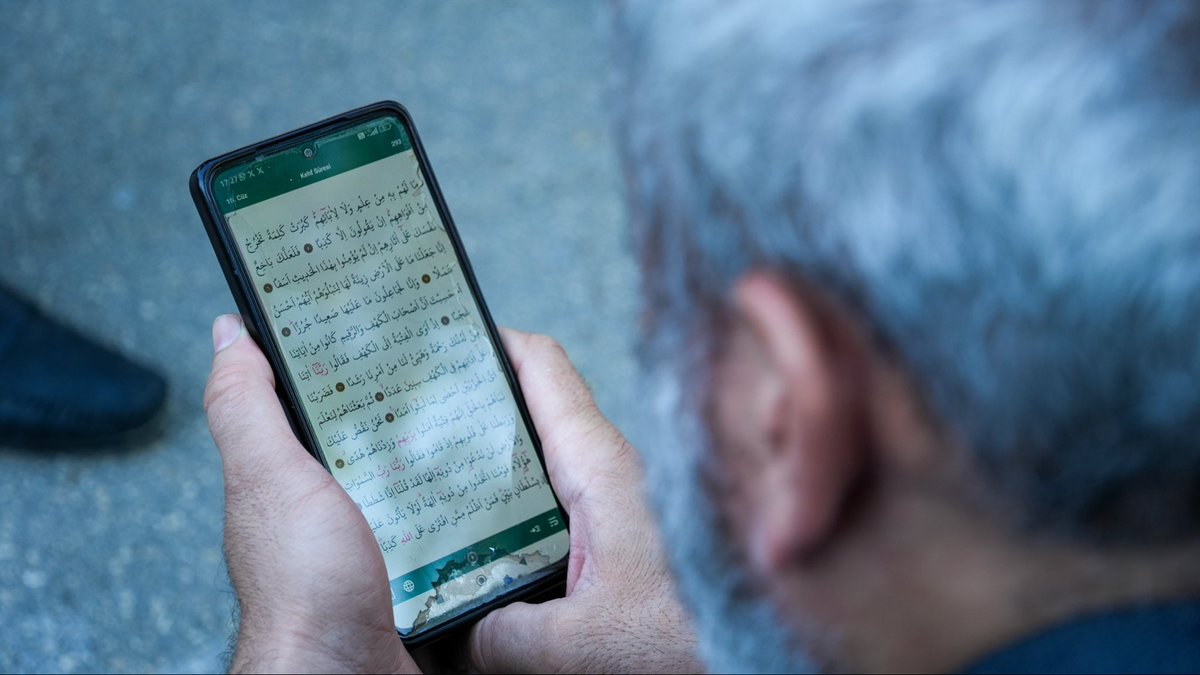 17:27
Kehf Sûresi
293
Cüz
مَا لَهُمْ بِهِ مِنْ عِلْمٍ وَلَا لِاٰبَٓائِهِمْ كَبُرَتْ كَلِمَةً تَخْرُجُ
مِنْ اَفْوَاهِهِمْ اِنْ يَقُولُونَ اِلَّا كَذِبًا فَلَعَلَّكَ بَاخِعٌ
نَفْسَكَ عَلٰٓى اٰثَارِهِمْ اِنْ لَمْ يُؤْمِنُوا بِهٰذَا الْحَدِيثِ اَسَفًا
اِنَّا جَعَلْنَا مَا عَلَى الْاَرْضِ زِينَةً لَهَا لِنَبْلُوَهُمْ اَيُّهُمْ اَحْسَنُ
عَمَلًا وَاِنَّا لَجَاعِلُونَ مَا عَلَيْهَا صَعِيدًا جُرُزًا
حَسِبْتَ اَنَّ اَصْحَابَ الْكَهْفِ وَالرَّقِيمِ كَانُوا مِنْ اٰيَاتِنَا
عَجَبًا اِذْ اَوَى الْفِتْيَةُ اِلَى الْكَهْفِ فَقَالُوا رَبَّنَٓا اٰتِنَا
مِنْ لَدُنْكَ رَحْمَةً وَهَيِّئْ لَنَا مِنْ اَمْرِنَا رَشَدًا فَضَرَبْنَا
عَلٰٓى اٰذَانِهِمْ فِي الْكَهْفِ سِنِينَ عَدَدًا ثُمَّ بَعَثْنَاهُمْ لِنَعْلَمَ
اَيُّ الْحِزْبَيْنِ اَحْصٰى لِمَا لَبِثُٓوا اَمَدًا نَحْنُ نَقُصُّ عَلَيْكَ
نَبَاَهُمْ بِالْحَقِّ اِنَّهُمْ فِتْيَةٌ اٰمَنُوا بِرَبِّهِمْ وَزِدْنَاهُمْ هُدًى
وَرَبَطْنَا عَلٰى قُلُوبِهِمْ اِذْ قَامُوا فَقَالُوا رَبُّنَا رَبُّ السَّمٰوَاتِ
وَالْاَرْضِ لَنْ نَدْعُوَا مِنْ دُونِهِ اِلٰهًا لَقَدْ قُلْنَٓا اِذًا شَطَطًا
هٰٓؤُلَٓاءِ قَوْمُنَا اتَّخَذُوا مِنْ دُونِهِ اٰلِهَةً لَوْلَا يَأْتُونَ عَلَيْهِمْ
بِسُلْطَانٍ بَيِّنٍ فَمَنْ اَظْلَمُ مِمَّنِ افْتَرٰى عَلَى اللّٰهِ كَذِبًا